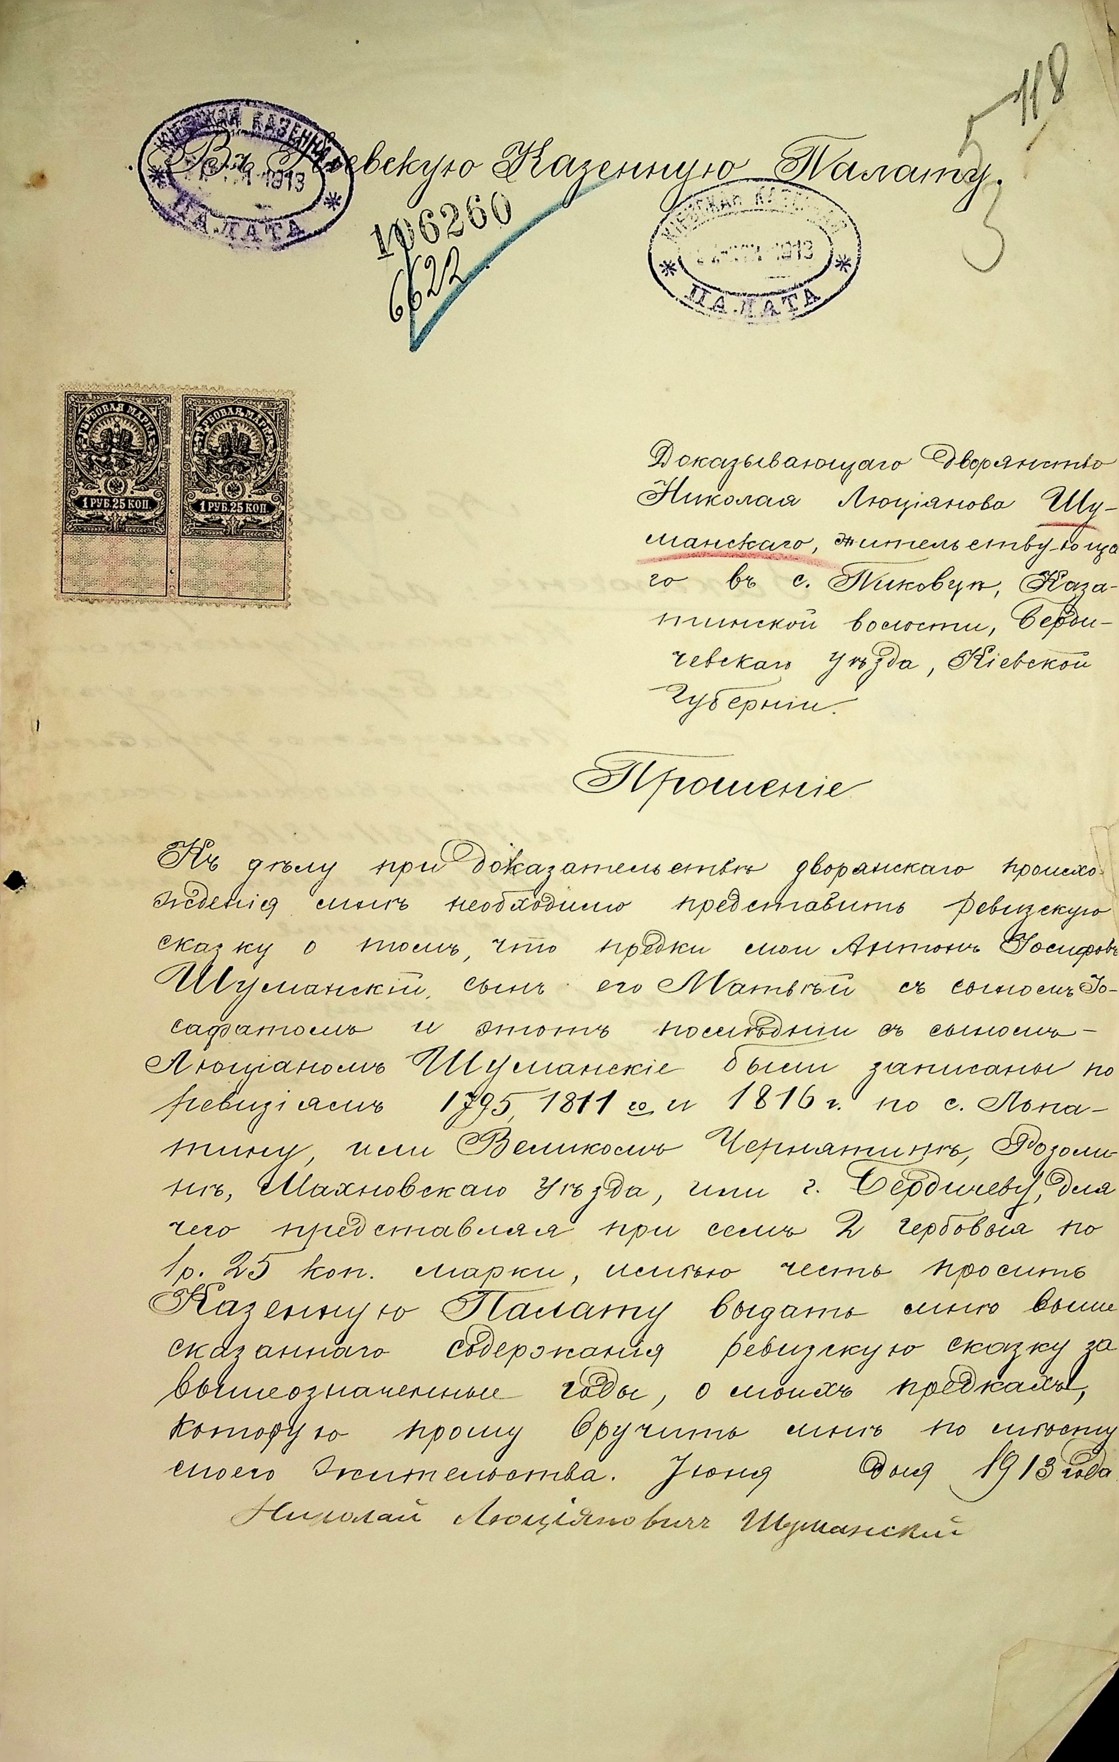 118
5
3
Въ Кіевскую Казенную Палату.
КІЕВСКАЯ КАЗЕННАЯ
1913
ПАЛАТА
106260
6622
КІЕВСКАЯ КАЗЕННАЯ
1913
ПАЛАТА
ГЕРБОВАЯ МАРКА
1 РУБ. 25 КОП.
ГЕРБОВАЯ МАРКА
1 РУБ. 25 КОП.
Доказывающаго дворянство
Николая Люціянова Шу-
манскаго, жительствующа
го въ с. Пиковцѣ, Каза-
тинской волости, Берди-
чевскаго уѣзда, Кіевской
Губерніи.
Прошеніе
Къ дѣлу при доказательствѣ дворянскаго происхо-
жденія мнѣ необходимо представить ревизскую
сказку о томъ, что предки мои Антонъ Іосифовъ
Шуманскій, сынъ его Матвѣй съ сыномъ Іо-
сафатомъ и этотъ послѣдній съ сыномъ-
Люціаномъ Шуманскіе были записаны по
ревизіямъ 1795, 1811 го и 1816 г. по с. Лопа-
тину, или Великомъ Чернятинѣ, Розоли-
нѣ, Махновскаго уѣзда, или г. Бердичеву, для
чего представляя при семъ 2 гербовыя по
1 р. 25 коп. марки, имѣю честь просить
Казенную Палату выдать мнѣ выше
сказаннаго содержанія ревизскую сказку за
вышеозначенные годы, о моихъ предкахъ,
которую прошу вручить мнѣ по мѣсту
моего жительства. Іюня дня 1913 года
Николай Люціяновичъ Шуманскій